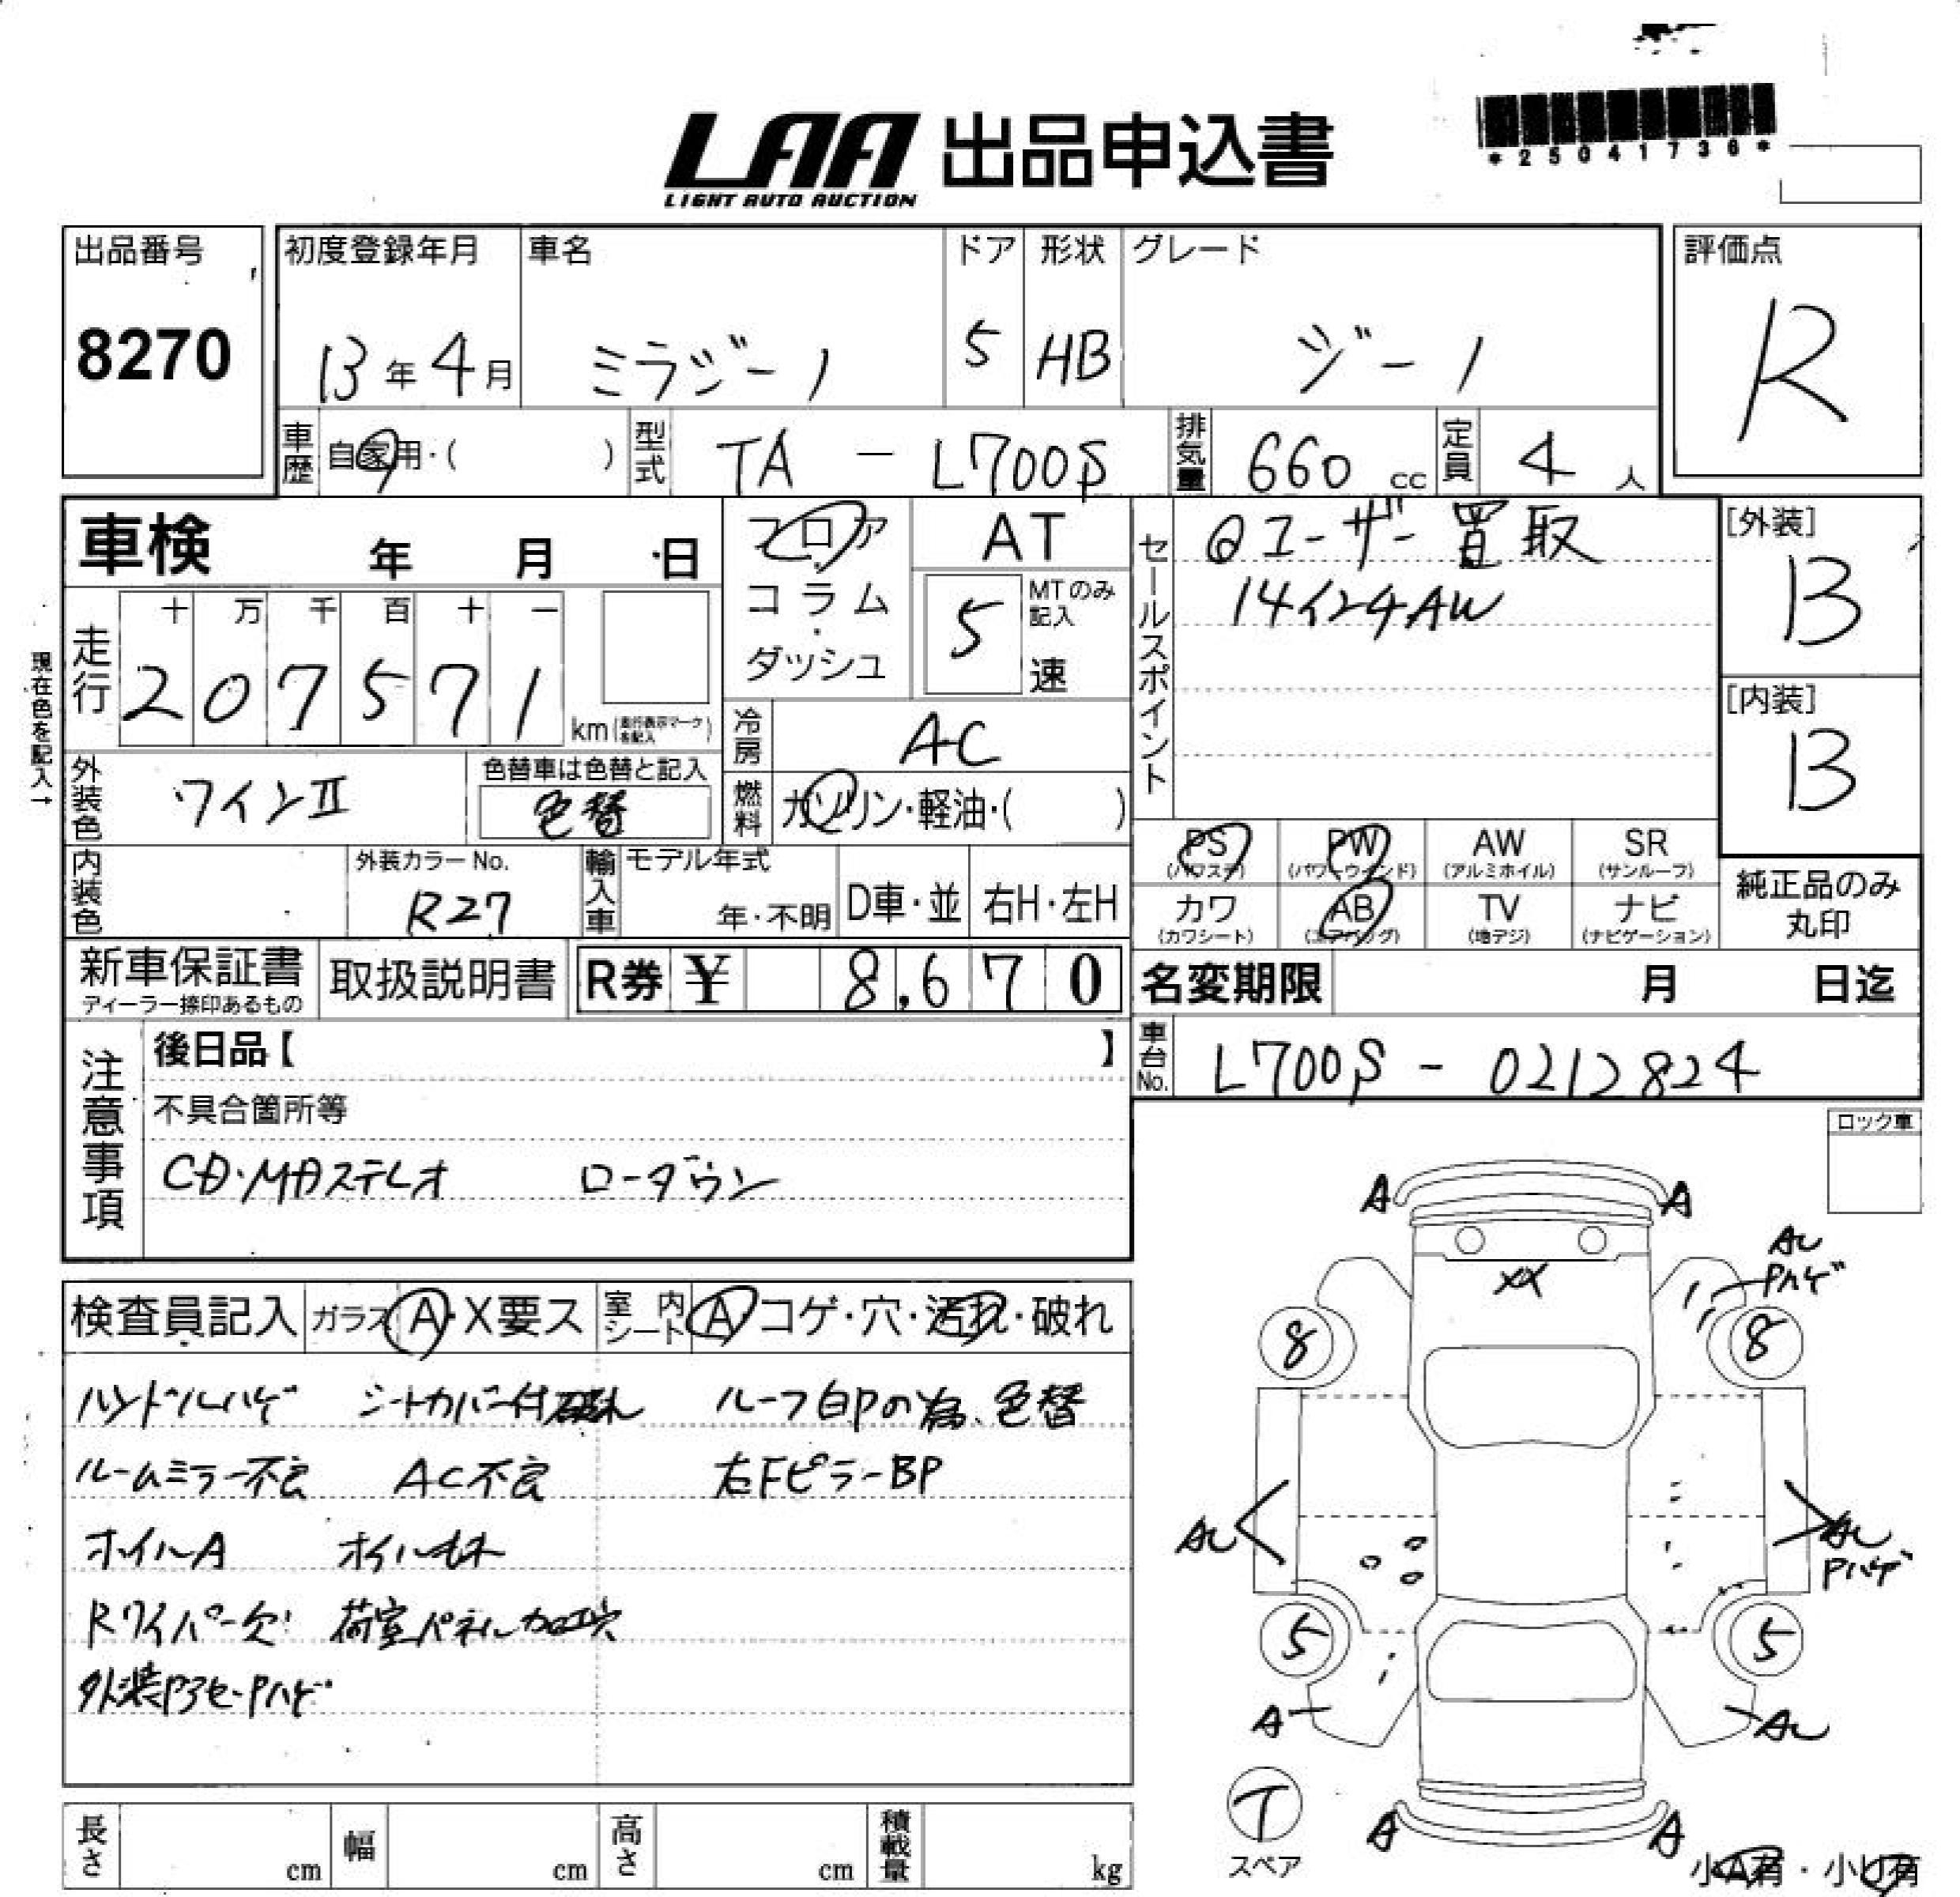 LAA 出品申込書
LIGHT AUTO AUCTION
*25041736*
出品番号
8270
初度登録年月
13年4月
車名
ミラジーノ
ドア
5
形状
HB
グレード
ジーノ
評価点
R
車歴 自家用・( )
型式 TA - L700S
排気量 660 cc
定員 4 人
車検 年 月 日
フロア・コラム・ダッシュ
AT
5 MTのみ記入 速
セールスポイント
@ユーザー買取
14インチAW
[外装]
B
[内装]
B
現在色を記入→
走行
十 万 千 百 十 一
2 0 7 5 7 1 km (走行表示マークを記入)
冷房 AC
外装色 ワインⅡ
色替車は色替と記入
色替
燃料 ガソリン・軽油・( )
PS (パワステ)
PW (パワーウインド)
AW (アルミホイル)
SR (サンルーフ)
カワ (カワシート)
AB (エアバッグ)
TV (地デジ)
ナビ (ナビゲーション)
純正品のみ
丸印
内装色
外装カラーNo.
R27
輸入車 モデル年式
年・不明
D車・並
右H・左H
新車保証書
ディーラー捺印あるもの
取扱説明書
R券 ¥ 8,670
名変期限 月 日迄
車台No. L700S - 0212824
注意事項
後日品【 】
不具合箇所等
CD・MDステレオ ローダウン
ロック車
検査員記入 ガラス A・X要ス 室内シート A コゲ・穴・汚れ・破れ
ハンドルハゲ シートカバー付破れ ルーフ白Pの為、色替
ルームミラー不良 AC不良 右FピラーBP
ホイルA オイルモレ
Rワイパー欠 荷室パネル加工穴
外装アクセ・Pハゲ
A A
AU
Pハゲ
XX
8 8
AU
AU
Pハゲ
5 5
A AU
T
スペア
A A
小A有・小U有
長さ cm
幅 cm
高さ cm
積載量 kg